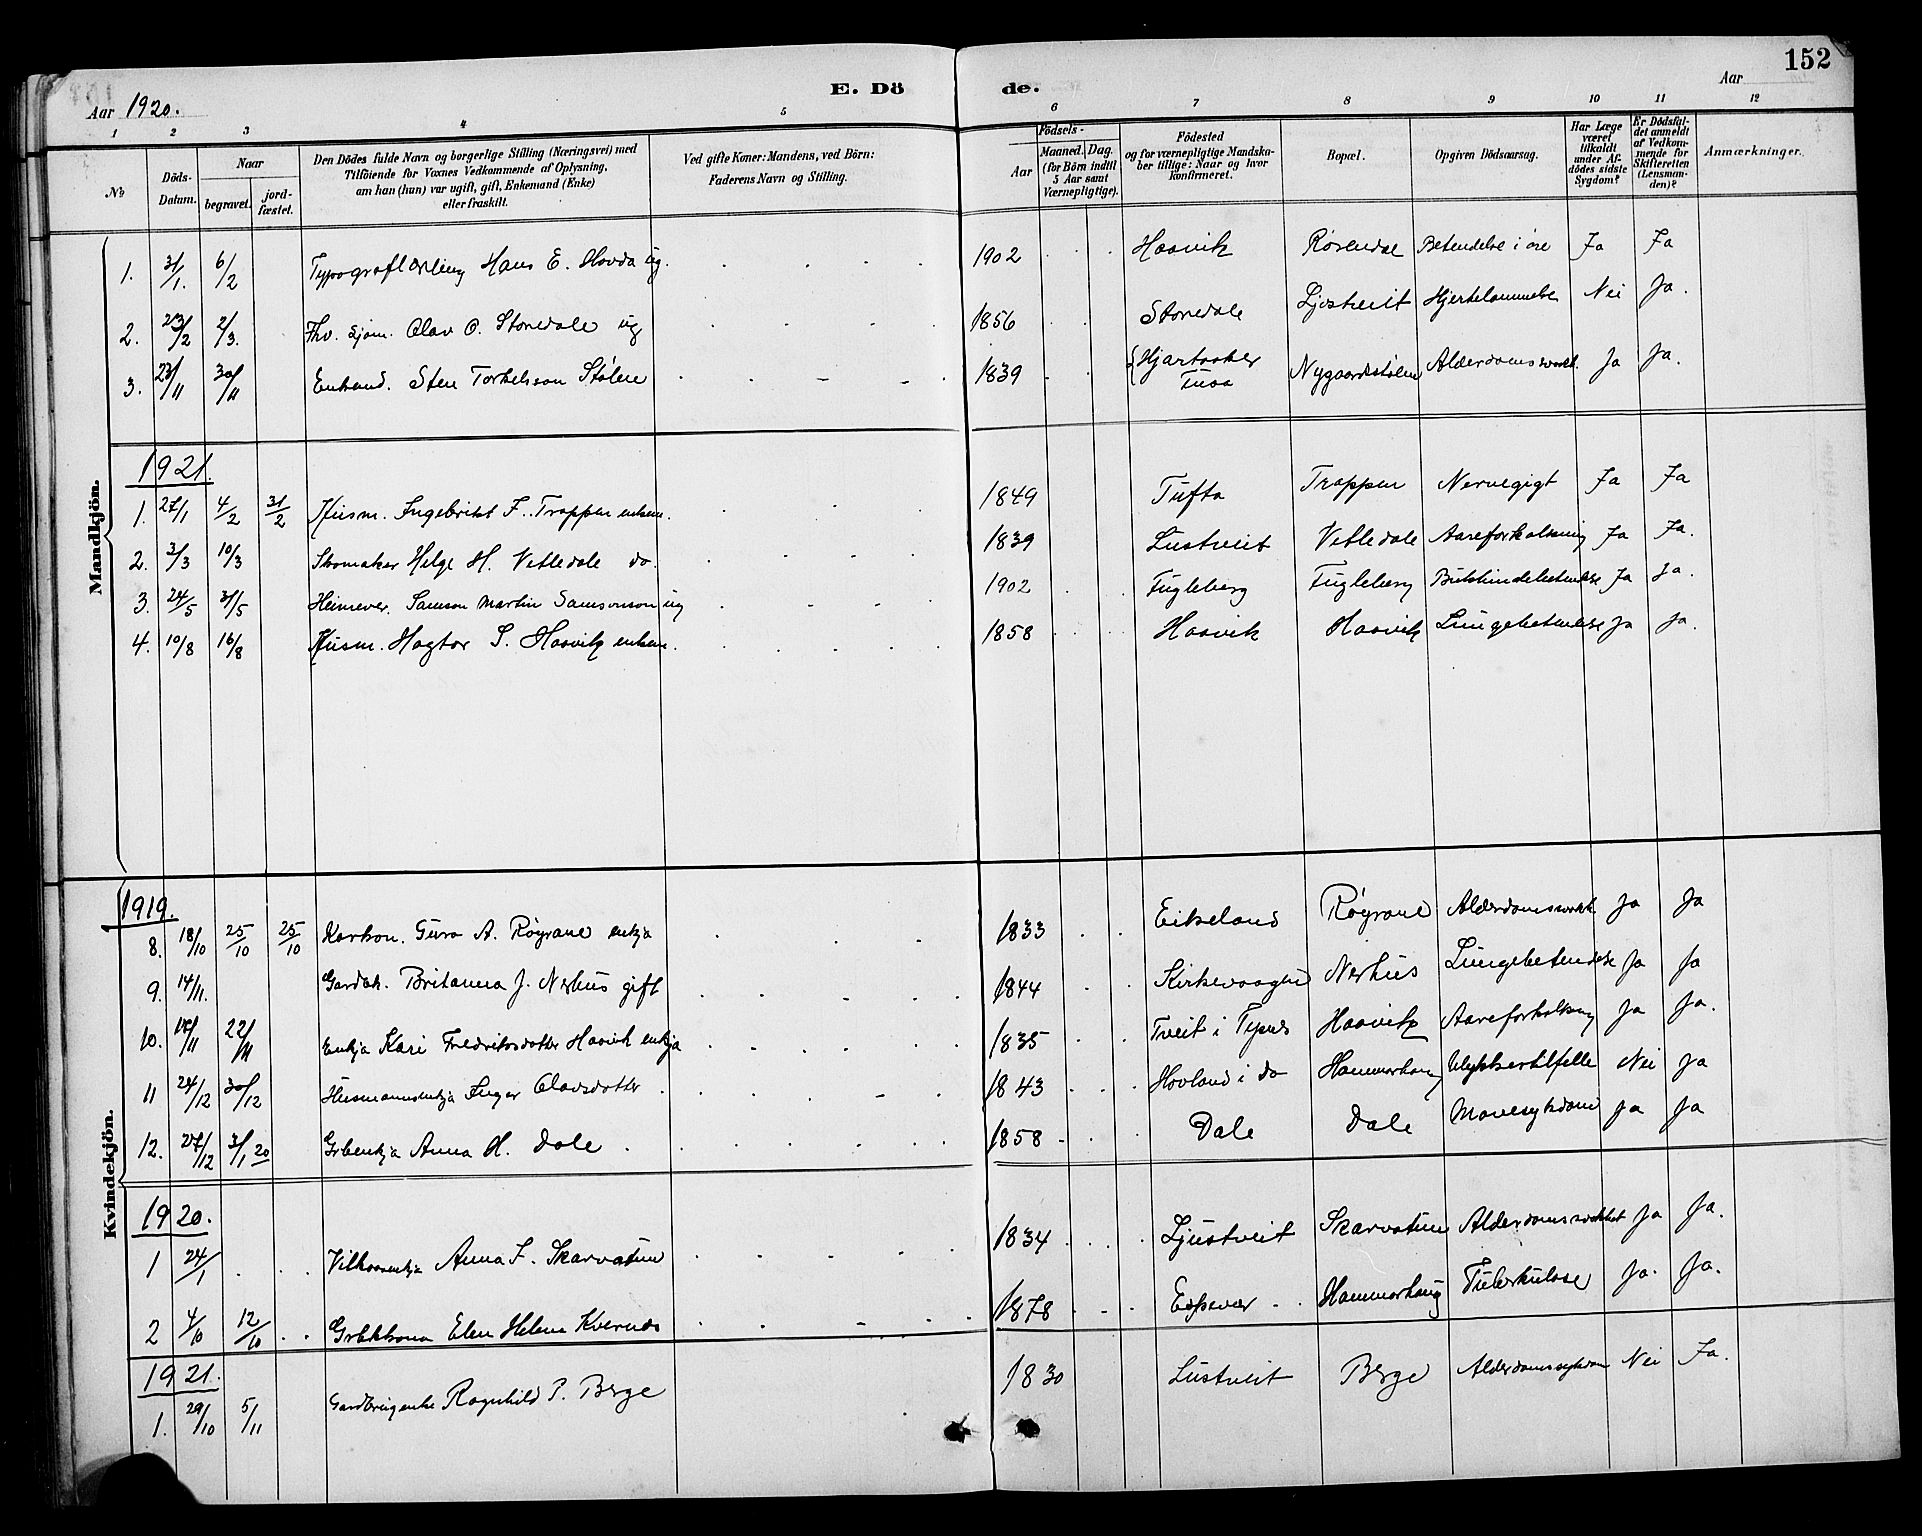 152
Aar 1920. E. Dö de. Aar
1 2 3 4 5 6 7 8 9 10 11 12
No
Döds-Datum.
Naar
begravet. jordfæstet.
Den Dödes fulde Navn og borgerlige Stilling (Næringsvei) med
Tilföiende for Voxnes Vedkommende af Oplysning,
om han (hun) var ugift, gift, Enkemand (Enke)
eller fraskilt.
Ved gifte Koner: Mandens, ved Börn:
Faderens Navn og Stilling.
Födsels-
Aar
Maaned. Dag.
(for Börn indtil
5 Aar samt
Værnepligtige).
Födested
og for værnepligtige Mandskaber tillige: Naar og hvor
konfirmeret.
Bopæl.
Opgiven Dödsaarsag.
Har Læge
været
tilkaldt
under Afdödes sidste
Sygdom?
Er Dödsfaldet anmeldt
af Vedkommende for
Skifteretten
(Lensmanden)?
Anmærkninger.
Mandkjön.
1. 31/1. 6/2 Typograflærling Hans E. Hovda ug. 1902 Haavik Rosendal Betendelse i øre Ja Ja
2. 23/2 2/3. Fhv. sjøm. Olav O. Storedale ug 1856 Storedale Ljostveit Hjertelammelse Nei Ja.
3. 23/11 30/11 Sten Torkelsson Stølen 1839 Hjartaaker Tuoa Nygaardsstølen Alderdomssvakh. Ja Ja.
1921.
1. 27/1 4/2 31/2 Husm. Ingebrikt F. Trappen enkem. 1849 Tufta Trappen Nervegigt Ja Ja
2. 3/3 10/3 Skomaker Helge H. Vetledale do. 1839 Lustveit Vetledale Aareforkalkning Ja Ja.
3. 24/5 31/5 Heimever. Samson Martin Samsonson ug 1902 Fugleberg Fugleberg Bukhindebetendelse Ja Ja.
4. 10/8 16/8 Husm. Hagtor S. Haavik enkem. 1858 Haavik Haavik Lungebetendelse Ja Ja.
Kvindekjön.
1919.
8. 18/10 25/10 25/10 Guro A. Røyrane enkja 1833 Eikeland Røyrane Alderdomssvakh Ja Ja
9. 14/11. Gardak. Britanna J. Nerhus gift 1844 Nerhus Lungebetendelse Ja Ja
10. 17/11 22/11 Enkja Kari Fredriksdotter Haavik enkja 1835 Tveit i Tysnes Haavik Aareforkalkning Ja Ja.
11 24/12 30/12 Husmannsenkja Inger Olavsdotter 1843 Hovland i do Hammerhaug Ulykkestilfelle Nei Ja
12. 27/12 3/1 20 Grbenkja Anna H. Dale 1858 Dale Dale Mavesykdom Ja Ja
1920.
1 24/1 Vilkaarsenkja Anna F. Skarvatun 1834 Ljustveit Skarvatun Alderdomssvakhet Ja Ja.
2 4/10 12/10 Elen Helene Kvernes 1878 Espevær Hammerhaug Tuberkulose Ja. Ja.
1921.
1. 29/10 5/11 Ragnhild P. Berge 1830 Lustveit Berge Alderdomssykdom Nei Ja.